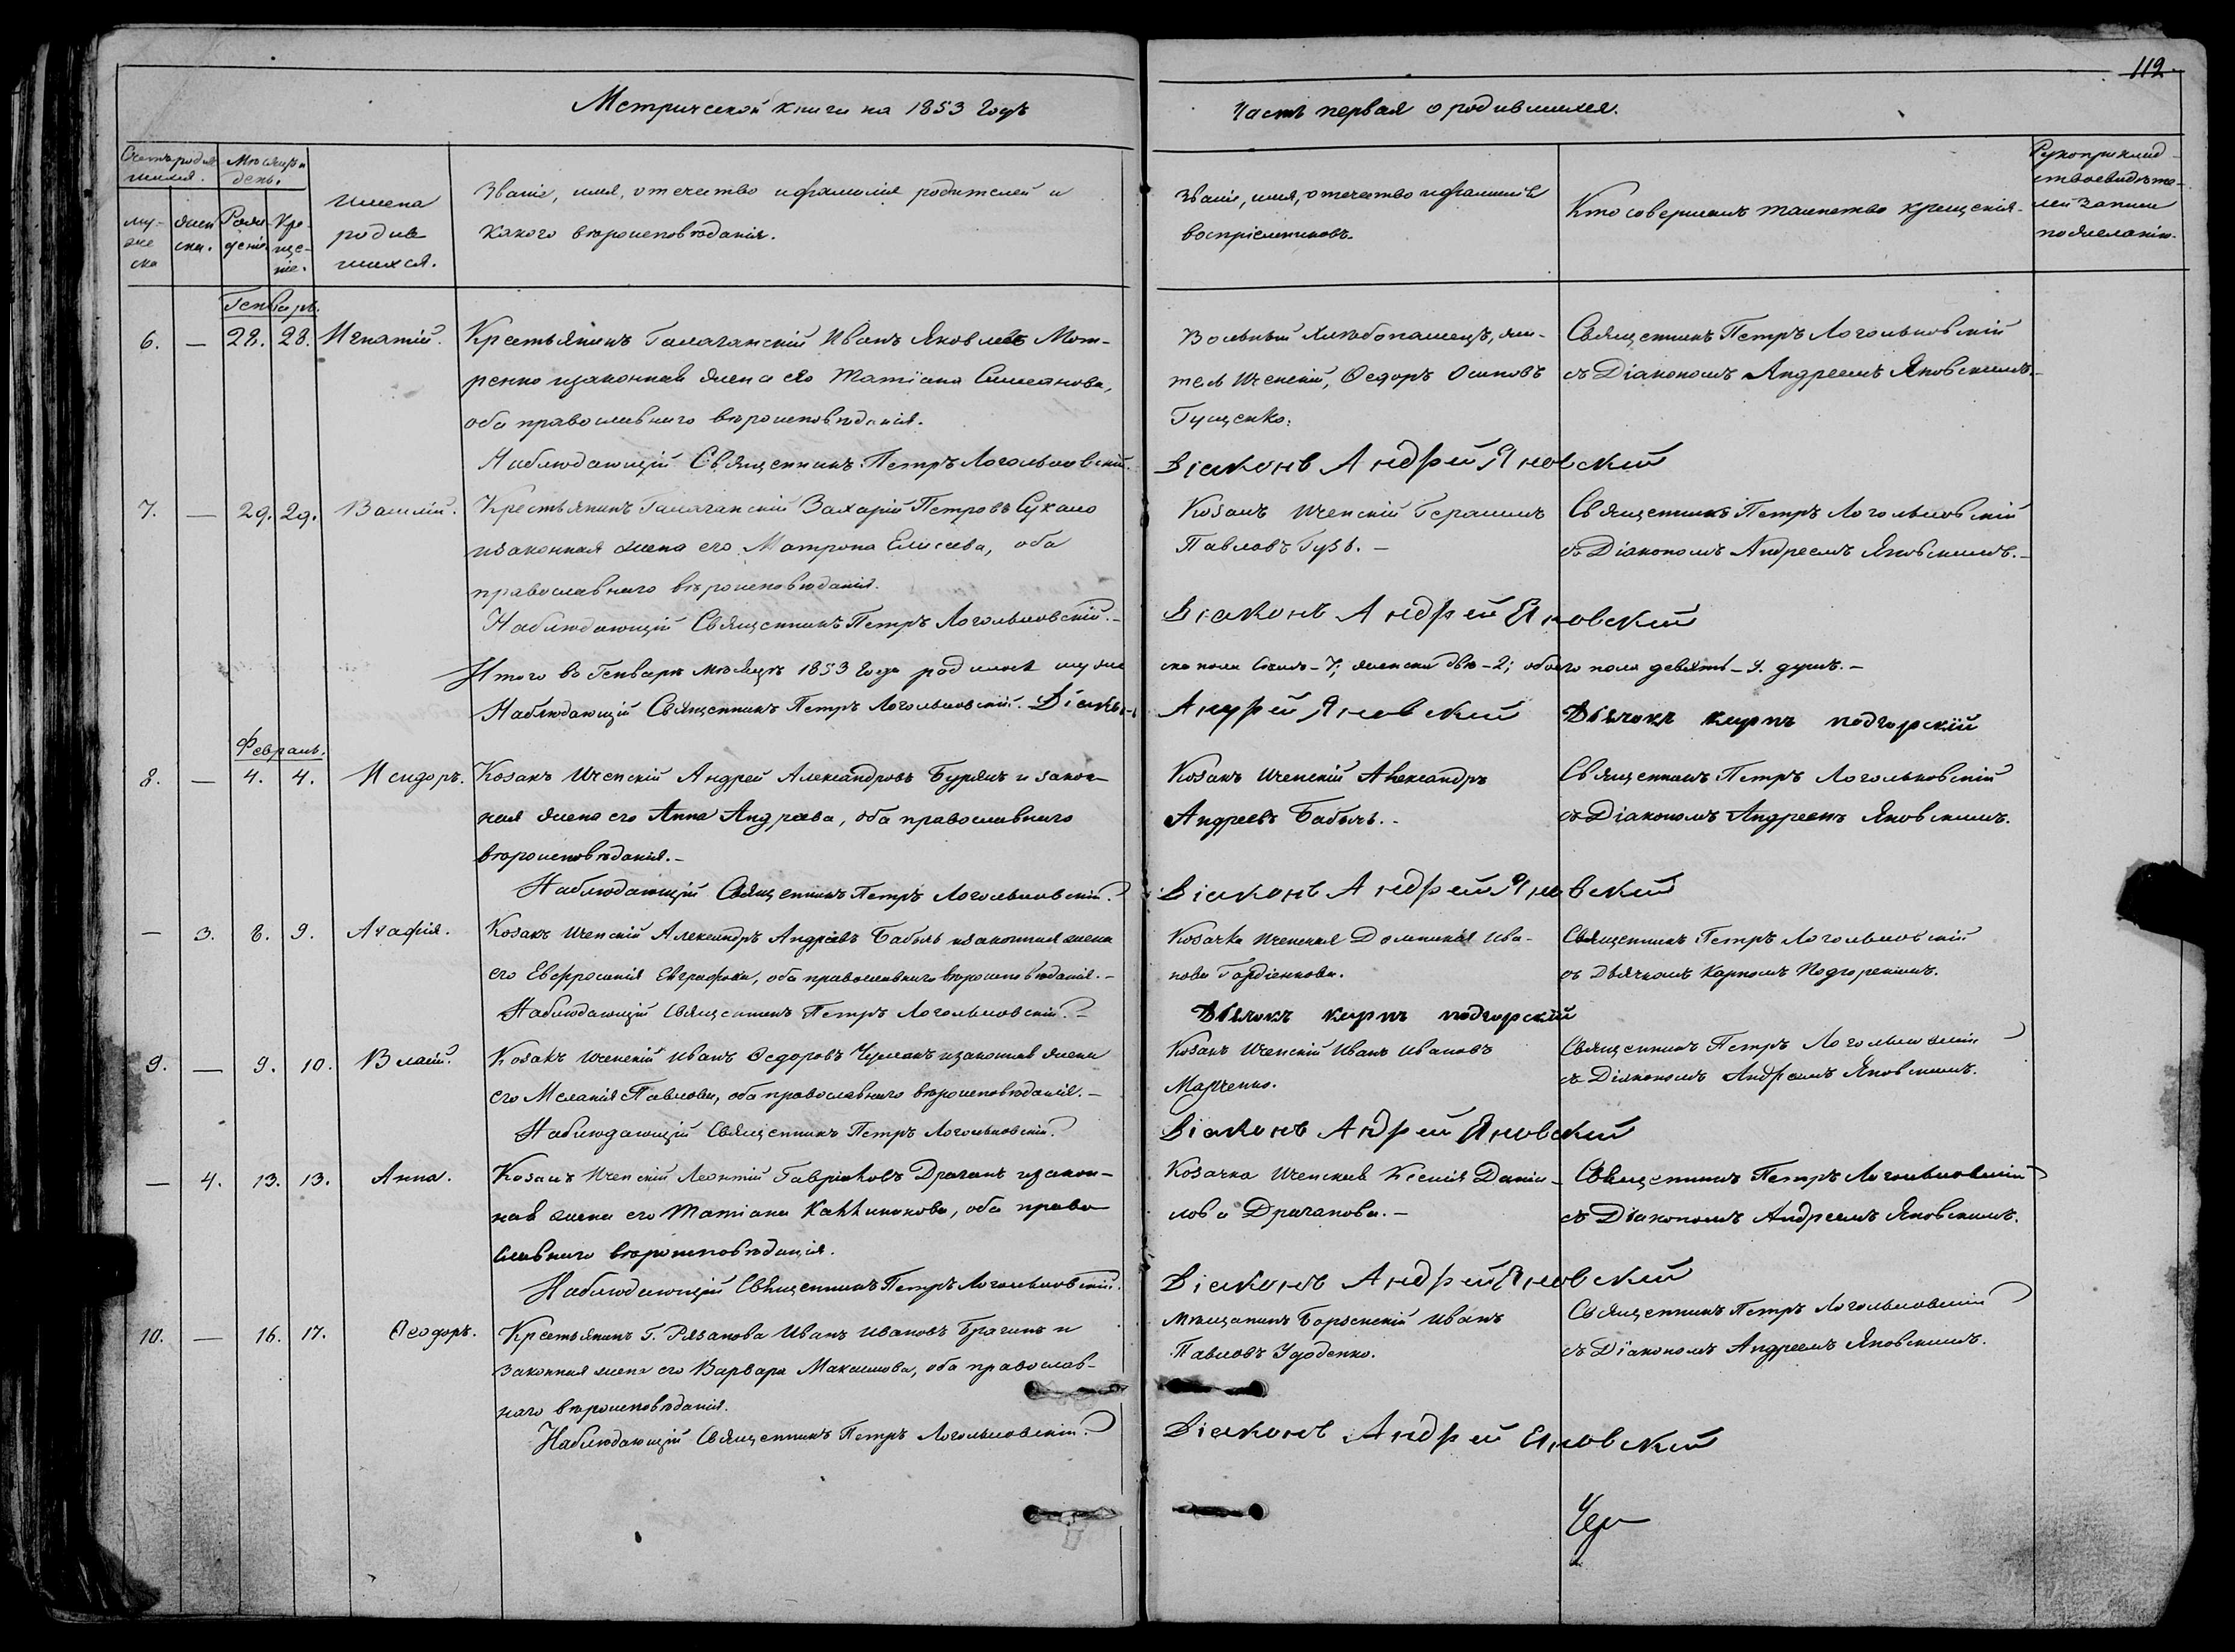 112.
Метрической книги на 1853 годъ
Часть первая о родившихся.
Счетъ родив
шихся.
Мѣсяцъ и
день.
му-
же
ска
жен
ска.
Рож-
деніе
Кре-
ще-
ніе.
имена
родив
шихся.
Званіе, имя, отечество и фамилія родителей и
какого вѣроисповѣданія.
Званіе, имя, отечество и фамилія
воспріемниковъ.
Кто совершалъ таинство крещенія.
Рукоприклад-
ство свидѣте-
лей записи
по желанію.
Генварь.
6. — 28. 28. Игнатій.
Крестьянинъ Галаганскій Иванъ Яковлевъ Мот-
ренко и законная жена его Татіана Симеонова,
оба православнаго вѣроисповѣданія.
Наблюдающій Священникъ Петръ Логольковскій.
Вольный Хлѣбопашецъ, жи-
тель Иченскій, Ѳедоръ Осиповъ
Гущенко.
Священникъ Петръ Логольковскій
съ Діакономъ Андреемъ Яновскимъ.
Діаконъ Андрей Яновский
7. — 29. 29. Василій.
Крестьянинъ Галаганскій Захарій Петровъ Сукало
и законная жена его Матрона Елисеева, оба
православнаго вѣроисповѣданія.
Наблюдающій Священникъ Петръ Логольковскій.
Козакъ Иченскій Герасимъ
Павловъ Гузь. —
Священникъ Петръ Логольковскій
съ Діакономъ Андреемъ Яновскимъ. —
Діаконъ Андрей Яновский
Итого въ Генварѣ мѣсяцѣ 1853 года родилось муже
ска пола Семь — 7; женска двѣ — 2; обоего пола девять — 9. душъ. —
Наблюдающій Священникъ Петръ Логольковскій. Діаконъ
Андрей Яновский
Дьячокъ карпъ подгорскій
Февраль.
8. — 4. 4. Исидоръ.
Козакъ Иченскій Андрей Александровъ Бурякъ и закон-
ная жена его Анна Андреева, оба православнаго
вѣроисповѣданія. —
Наблюдающій Священникъ Петръ Логольковскій.
Козакъ Иченскій Александръ
Андреевъ Бабычъ. —
Священникъ Петръ Логольковскій
съ Діакономъ Андреемъ Яновскимъ.
Діаконъ Андрей Яновский
— 3. 8. 9. Агафія.
Козакъ Иченскій Александръ Андреевъ Бабычъ и законная жена
его Евфросинія Евграфова, оба православнаго вѣроисповѣданія. —
Наблюдающій Священникъ Петръ Логольковскій.
Козачка Иченская Домникія Ива-
нова Гордіенкова.
Священникъ Петръ Логольковскій
съ Дьячкомъ Карпомъ Подгорскимъ.
Дьячокъ карпъ подгорскій
9. — 9. 10. Власій.
Козакъ Иченскій Иванъ Ѳедоровъ Чумакъ и законная жена
его Меланія Павлова, оба православнаго вѣроисповѣданія. —
Наблюдающій Священникъ Петръ Логольковскій.
Козакъ Иченскій Иванъ Ивановъ
Марченко.
Священникъ Петръ Логольковскій
съ Діакономъ Андреемъ Яновскимъ.
Діаконъ Андрей Яновский
— 4. 13. 13. Анна.
Козакъ Иченскій Леонтій Гавриловъ Драганъ и закон-
ная жена его Татіана Каллиникова, оба право-
славнаго вѣроисповѣданія.
Наблюдающій Священникъ Петръ Логольковскій.
Козачка Иченская Ксенія Даніи-
лова Драганова. —
Священникъ Петръ Логольковскій
съ Діакономъ Андреемъ Яновскимъ.
Діаконъ Андрей Яновский
10. — 16. 17. Ѳеодоръ.
Крестьянинъ Г. Рязанова Иванъ Ивановъ Брагинъ и
законная жена его Варвара Максимова, оба православ-
наго вѣроисповѣданія.
Наблюдающій Священникъ Петръ Логольковскій.
Мѣщанинъ Борзенскій Иванъ
Павловъ Удоденко.
Священникъ Петръ Логольковскій
съ Діакономъ Андреемъ Яновскимъ.
Діаконъ Андрей Яновский